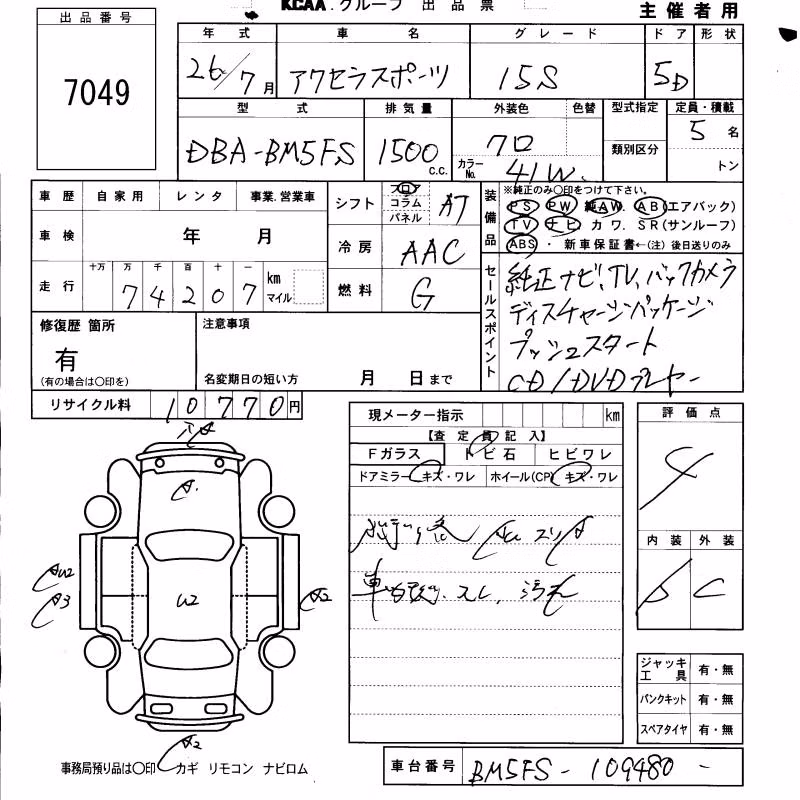 KCAA.グループ 出品票
主催者用
出品番号
7049
年式 車名 グレード ドア 形状
26/7月 アクセラスポーツ 15S 5D
型式 排気量 外装色 色替 型式指定 定員・積載
DBA-BM5FS 1500 c.c. クロ 類別区分 5名
カラーNo. 41W. トン
車歴 自家用 レンタ 事業.営業車
車検 年 月
走行 十万 万 千 百 十 一 km マイル
74207
シフト フロア コラム パネル AT
冷房 AAC
燃料 G
装備品 ※純正のみ○印をつけて下さい。
PS PW 純AW. AB(エアバック)
TV ナビ カワ. SR(サンルーフ)
ABS ・ 新車保証書←(注) 後日送りのみ
セールスポイント
純正ナビ、TV、バックカメラ
ディスチャージパッケージ
プッシュスタート
CD/DVDプレヤー
修復歴 箇所
有
(有の場合は○印を)
注意事項
名変期日の短い方 月 日まで
リサイクル料 10770円
現メーター指示 km
【査定員記入】
Fガラス トビ石 ヒビワレ
ドアミラー キズ・ワレ ホイール(CP) キズ・ワレ
車内 スレ、汚れ
評価点
4
内装 外装
C
A1
U2
AU2
A3
A2
A2
ジャッキ工具 有・無
パンクキット 有・無
スペアタイヤ 有・無
事務局預り品は○印 カギ リモコン ナビロム
車台番号 BM5FS - 109480 -